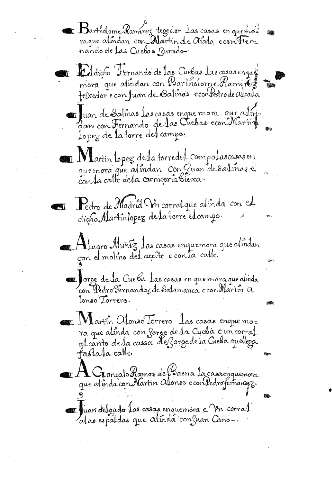 Bartolome Ramirez texedor las casas en que mo
ra que alindan con Martin de Alcala e con Fer
nando de las Cuebas
El dicho Fernando de las Cuebas las casas en que
mora que alindan con Bartholome Ramirez
texedor e con Juan de Salinas e con Pedro de Alcala
Juan de Salinas las casas en que mora que alin
dan con Fernando de las Cuebas e con Martin
Lopez de la torre del campo
Martin Lopez de la torre del Campo las casas en
que mora que alindan con Juan de Salinas e
con la calle de la
Pedro de Madrid Un corral que alinda con el
dicho Martin Lopez de la torre el campo
Alvaro Muñiz las casas en que mora que alindan
con el molino del açeite e con la calle
Jorge de la Cueba las casas en que mora que alinda
con Pedro Fernandez de Salamanca e con Martin A
lonso Torrero
Martin Alonso Torrero las casas en que mo
ra que alinda con Jorge de la Cueba e un corral
el canto de la cassa de Jorge de la Cueba que llega
fasta la calle
A Gonçalo Ramos de Baena la casa en que mora
que alinda con Martin Alonso e con Pedro Fernandez
Juan delgado las casas en que mora e Un corral
a las espaldas que alinda con Juan Cano